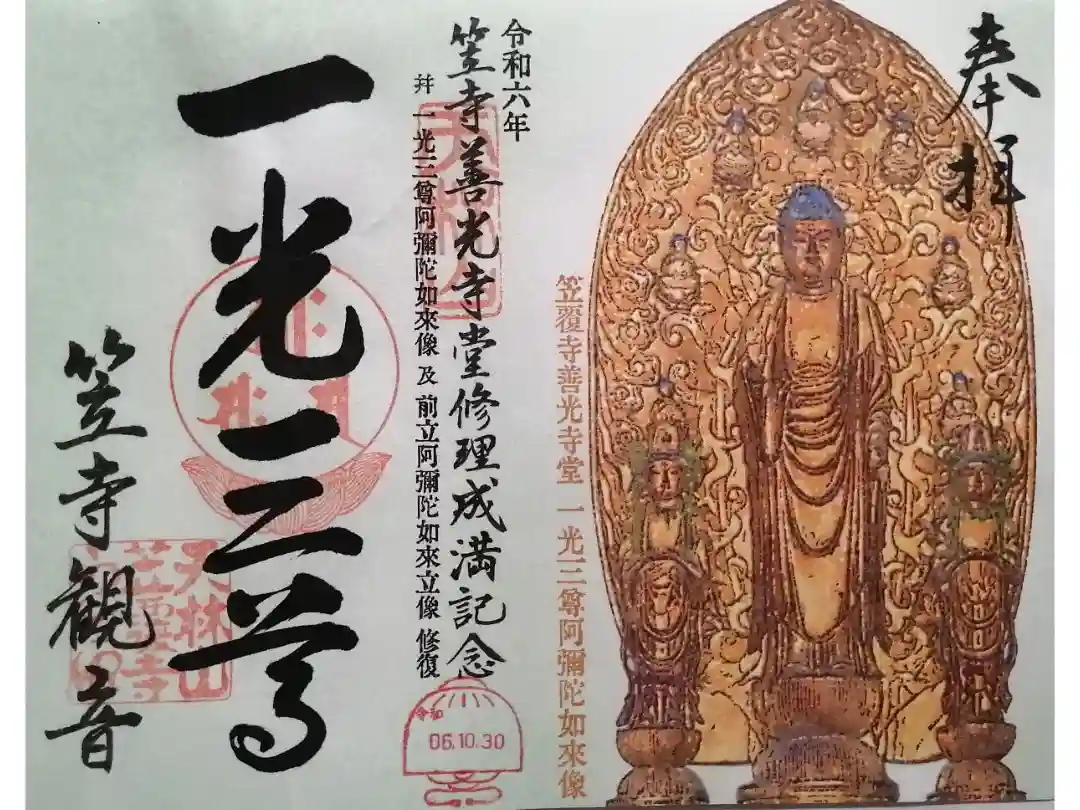 奉拝
笠覆寺善光寺堂 一光三尊阿彌陀如來像
令和六年
笠寺善光寺堂修理成満記念
并 一光三尊阿彌陀如來像 及 前立阿彌陀如來立像 修復
令和
06.10.30
一光三尊
笠寺観音
天林山
笠覆寺